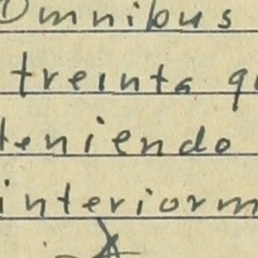 Omnibus
treinta qu
teniendo
interiorm